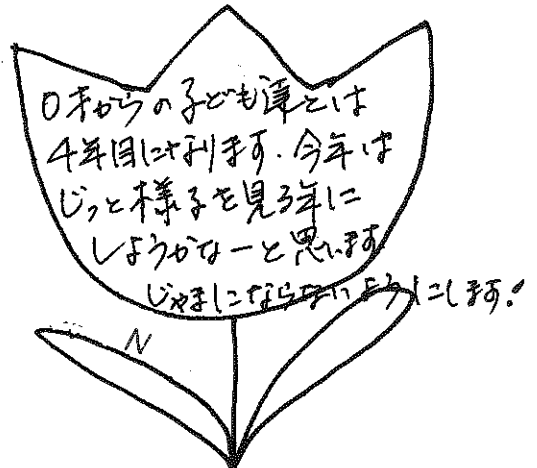 0才からの子ども達とは
4年目になります。今年は
じっと様子を見る年に
しようかなーと思います。
じゃまにならないようにします!
N